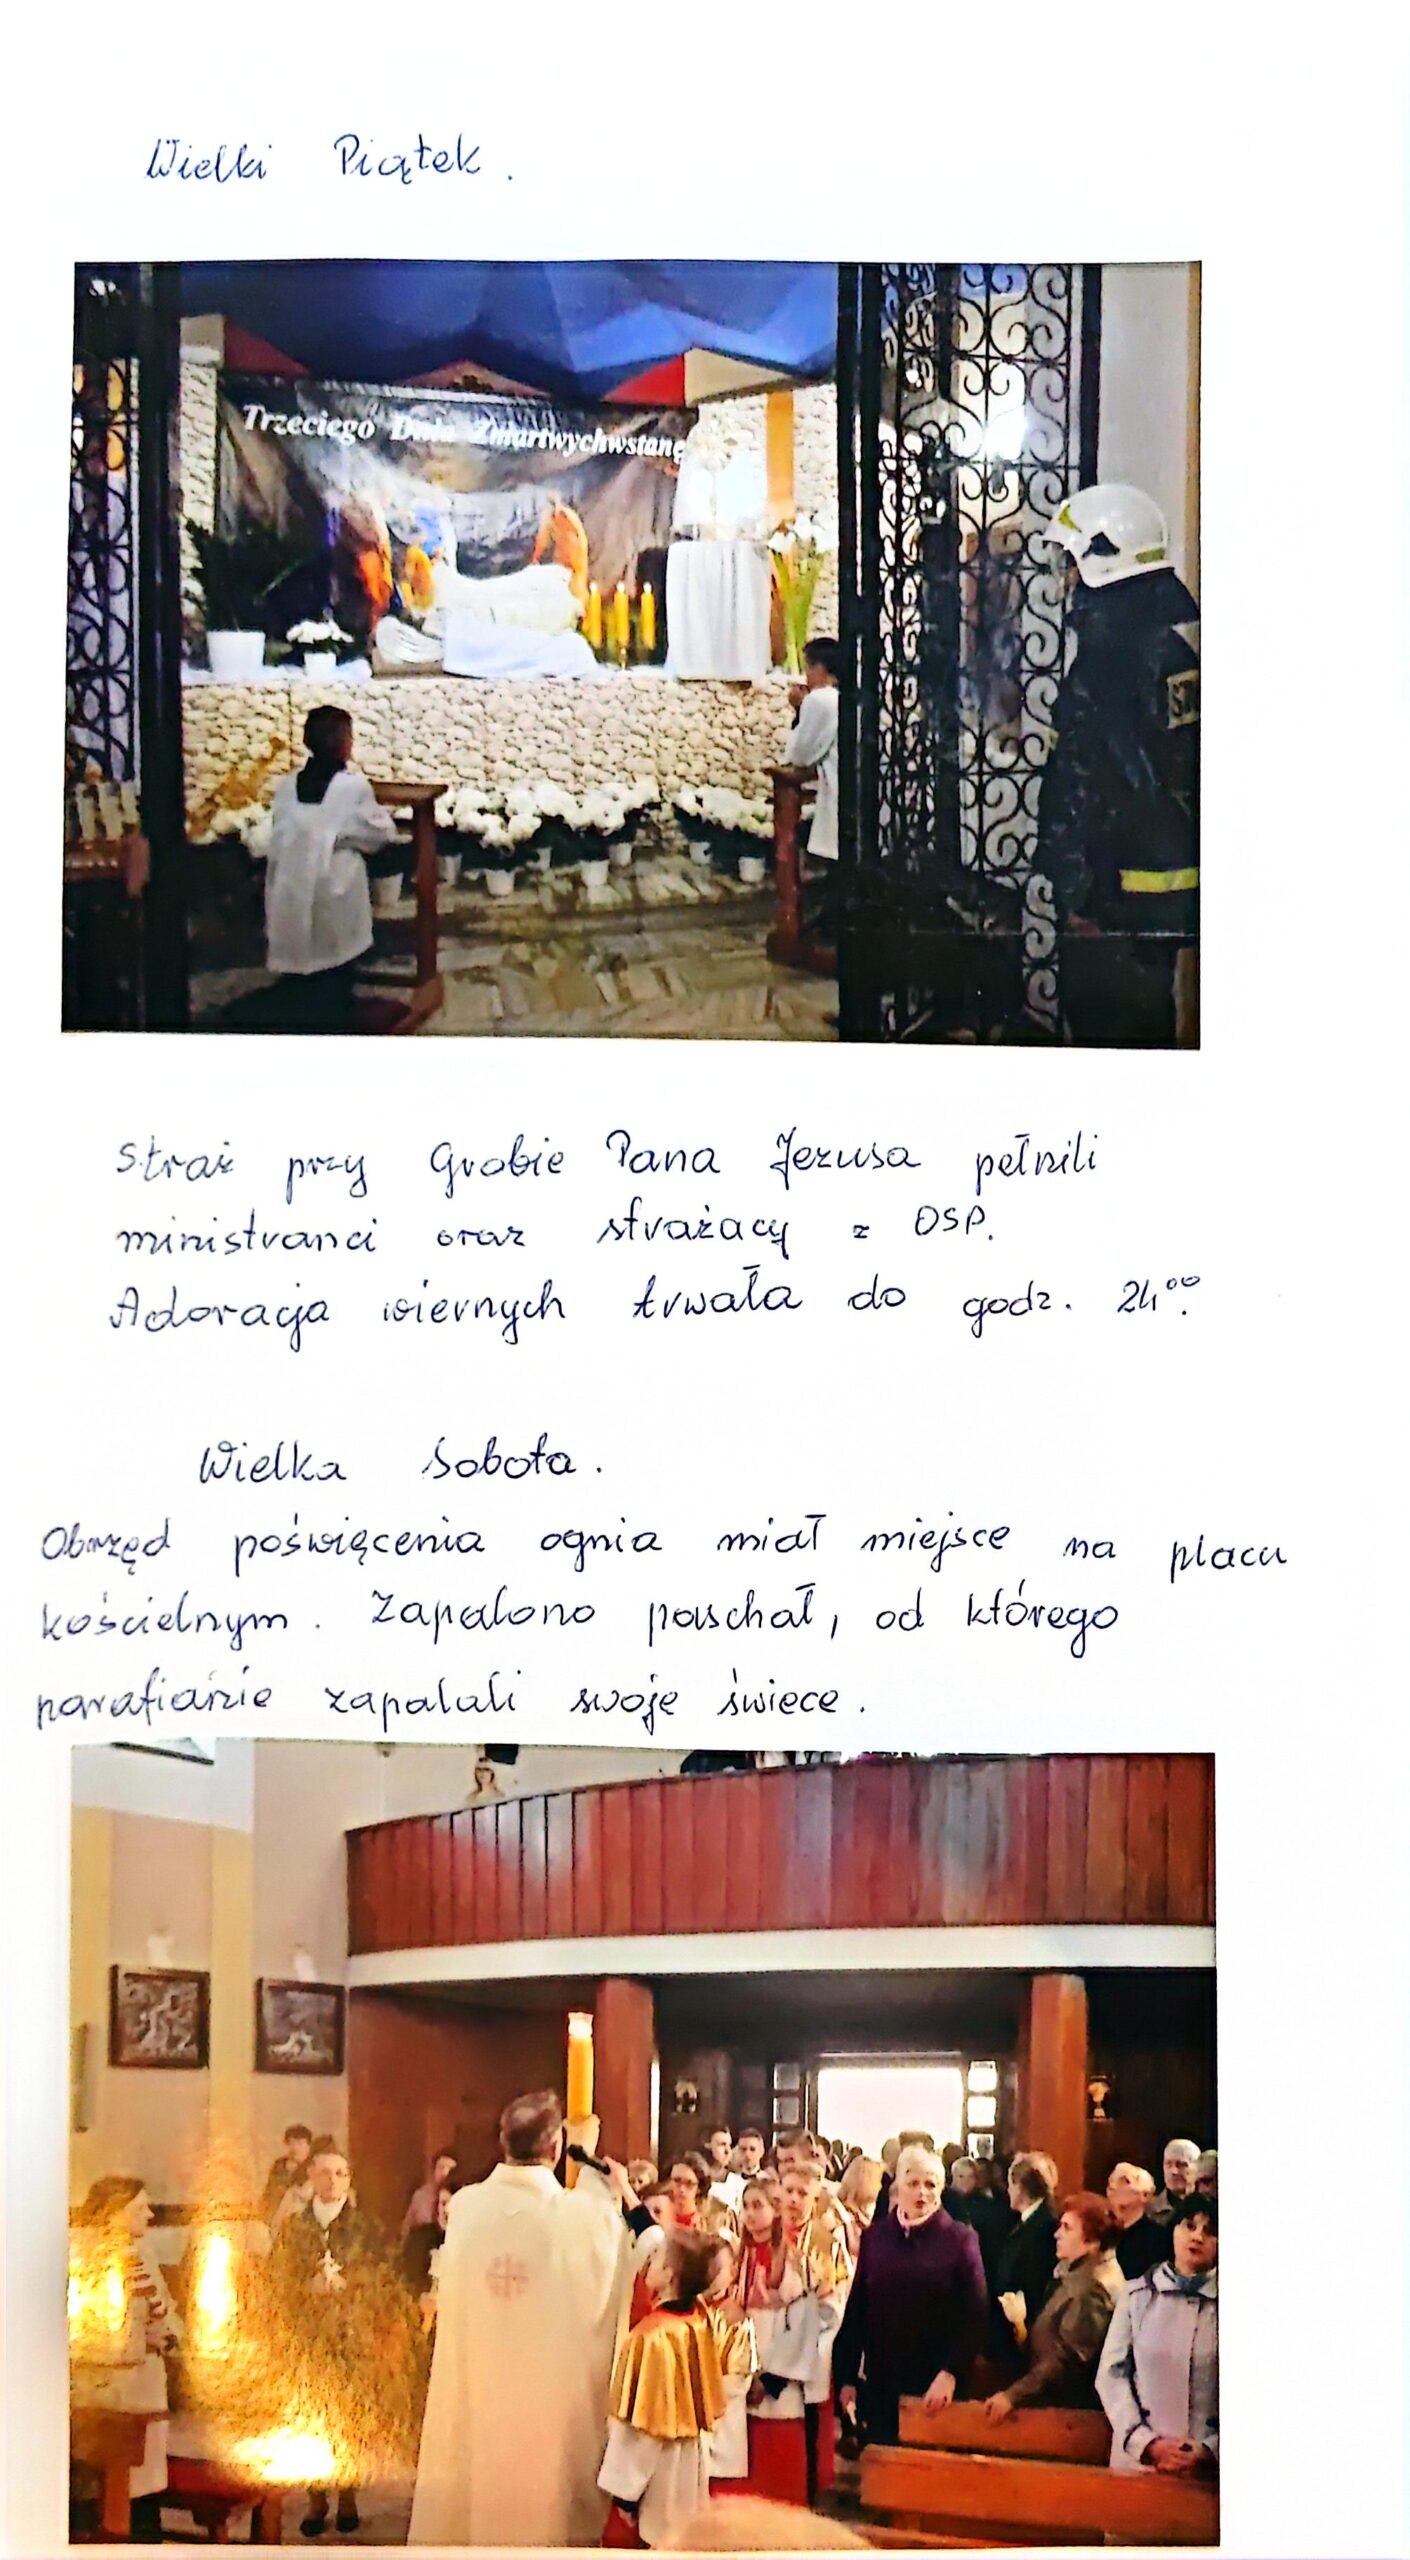 Wielki Piątek.
Trzeciego Dnia Zmartwychwstanę
Straż przy Grobie Pana Jezusa pełnili
ministranci oraz strażacy z OSP.
Adoracja wiernych trwała do godz. 24⁰⁰.
Wielka Sobota.
Obrzęd poświęcenia ognia miał miejsce na placu
kościelnym. Zapalono paschał, od którego
parafianie zapalali swoje świece.